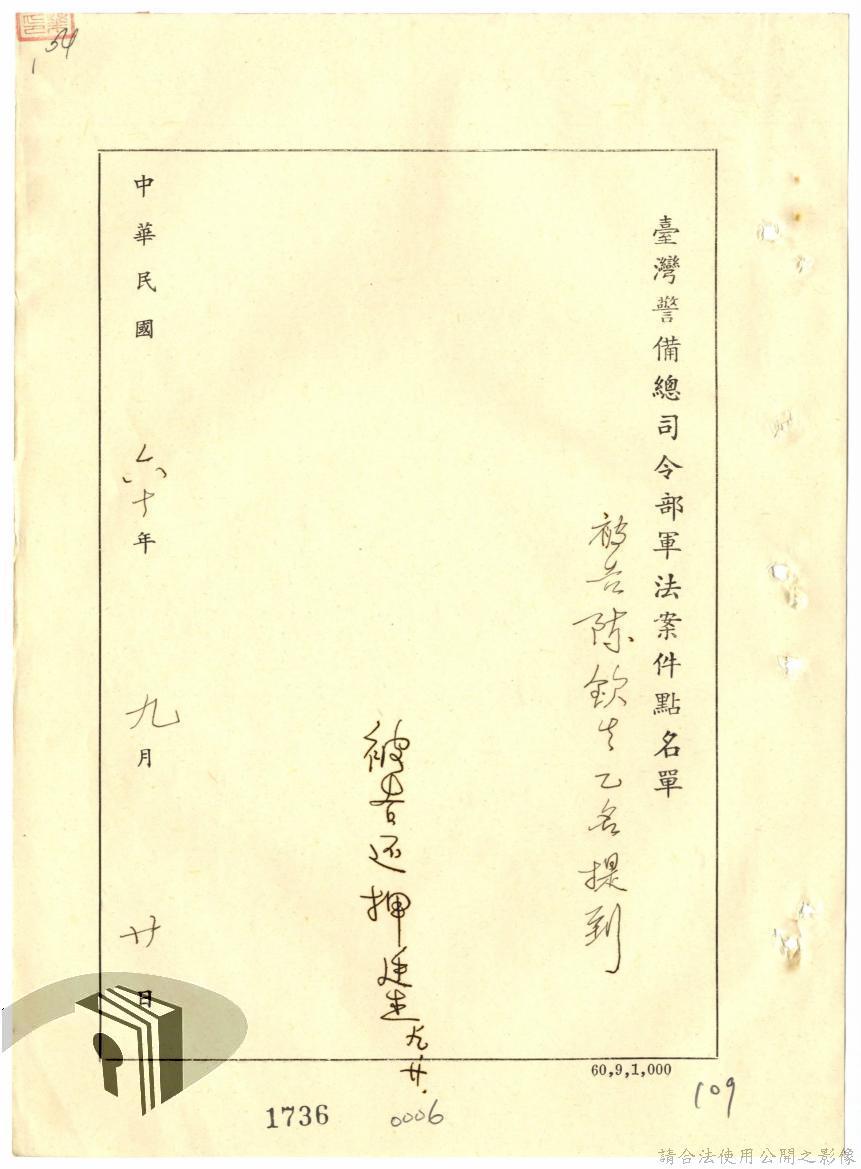 54
臺灣警備總司令部軍法案件點名單
被告陳欽生乙名提到
被告还押
九.廿.
中華民國 六十年 九月 廿日
60,9,1,000
109
1736
0006
請合法使用公開之影像